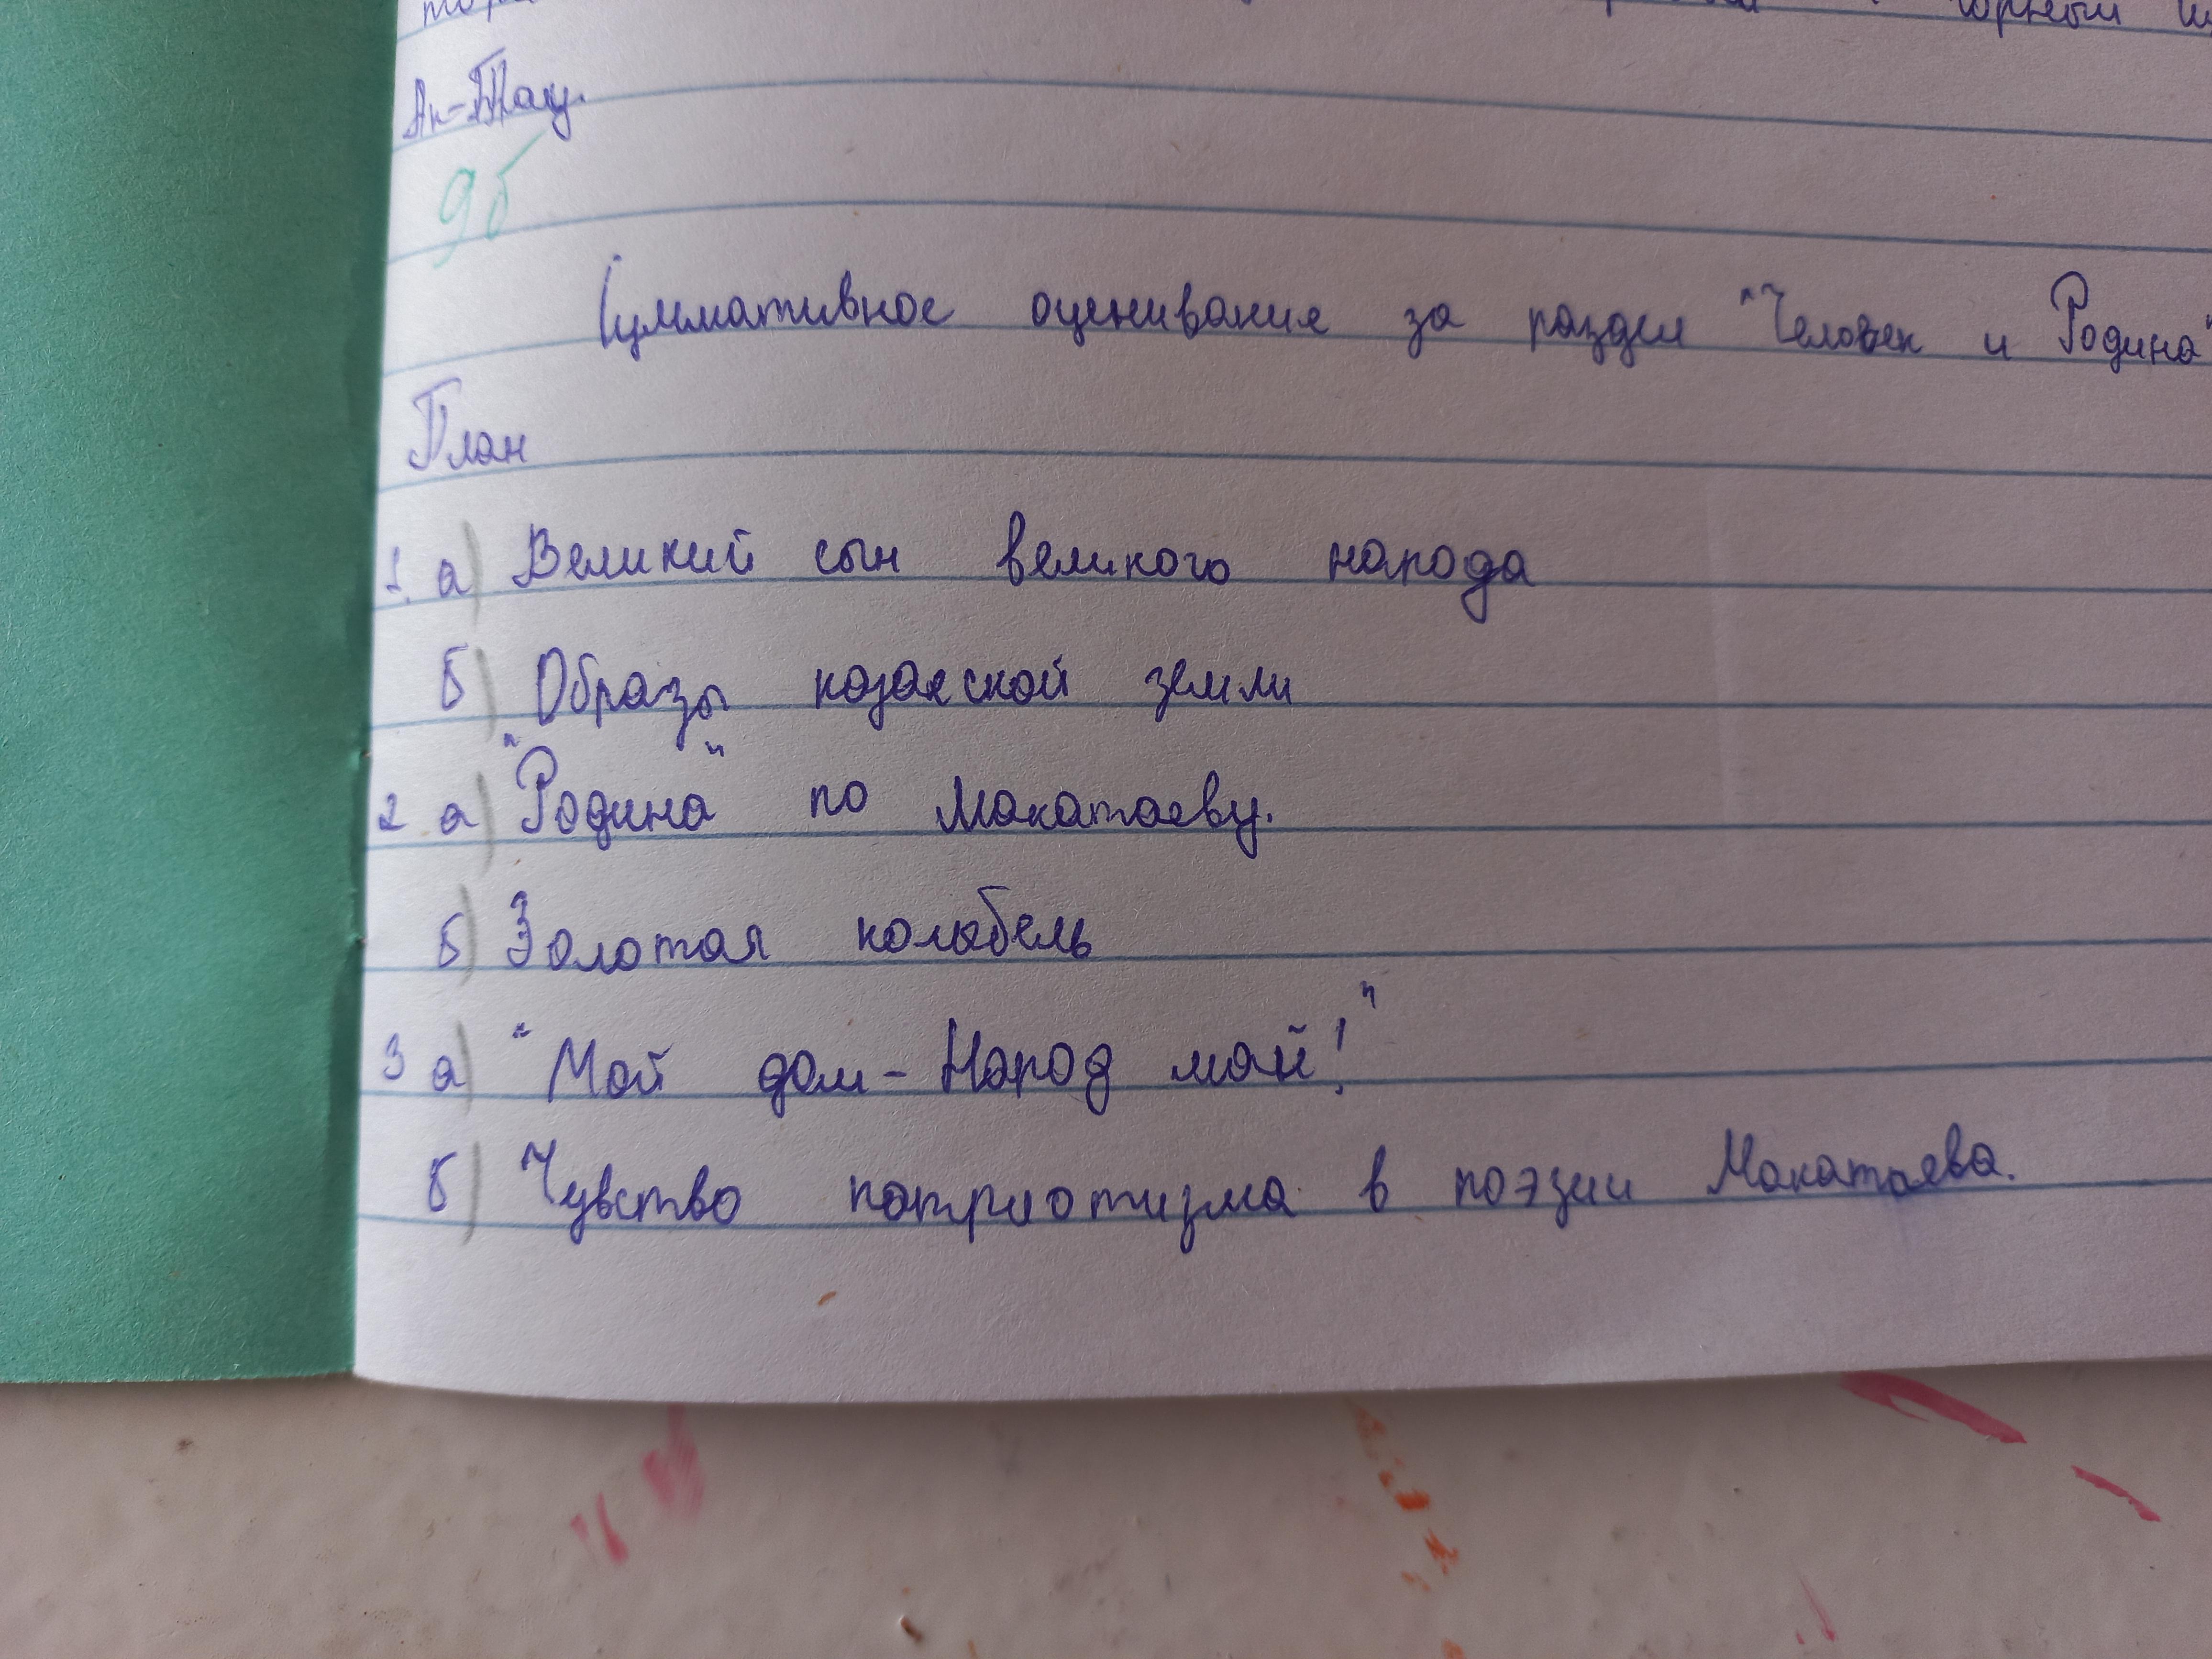 Ак-Тау.
9б
Суммативное оценивание за раздел "Человек и Родина"
План
1. а) Великий сын великого народа
б) Образы казахской земли
2. а) "Родина" по Макатаеву.
б) Золотая колыбель
3 а) "Мой дом - Народ мой!"
б) Чувство патриотизма в поэзии Макатаева.